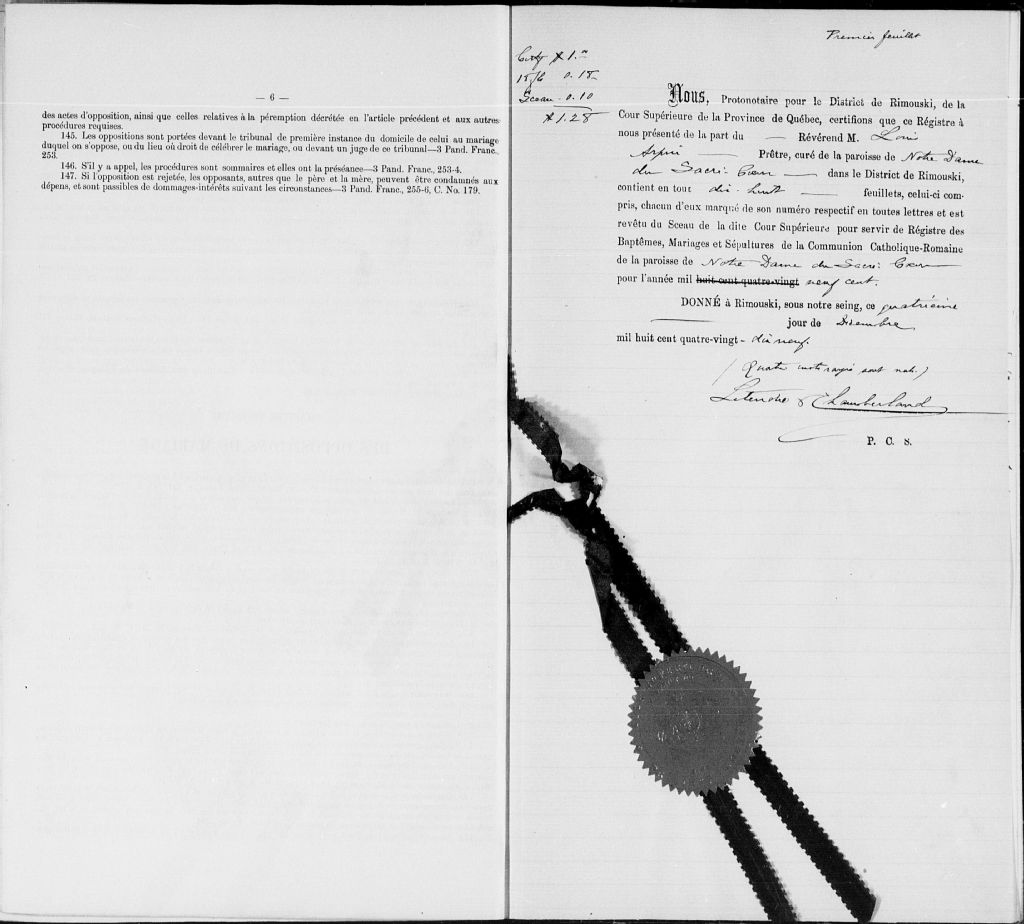 — 6 —
des actes d'opposition, ainsi que celles relatives à la péremption décrétée en l'article précédent et aux autres
procédures requises.
145. Les oppositions sont portées devant le tribunal de première instance du domicile de celui au mariage
duquel on s'oppose, ou du lieu où droit de célébrer le mariage, ou devant un juge de ce tribunal—3 Pand. Franc.,
253.
146. S'il y a appel, les procédures sont sommaires et elles ont la préséance—3 Pand. Franc., 253-4.
147. Si l'opposition est rejetée, les opposants, autres que le père et la mère, peuvent être condamnés aux
dépens, et sont passibles de dommages-intérêts suivant les circonstances—3 Pand. Franc., 255-6, C. No. 179.
Premier feuillet
0.18
Sceau 0.10
$1.28
Nous, Protonotaire pour le District de Rimouski, de la
Cour Supérieure de la Province de Québec, certifions que ce Régistre à
nous présenté de la part du — Révérend M. Louis
Arpin — Prêtre, curé de la paroisse de Notre Dame
du Sacré Cœur — dans le District de Rimouski,
contient en tout dix-huit — feuillets, celui-ci com-
pris, chacun d'eux marqué de son numéro respectif en toutes lettres et est
revêtu du Sceau de la dite Cour Supérieure pour servir de Régistre des
Baptêmes, Mariages et Sépultures de la Communion Catholique-Romaine
de la paroisse de Notre Dame du Sacré Cœur
pour l'année mil huit cent quatre-vingt neuf cent.
DONNÉ à Rimouski, sous notre seing, ce quatrième
jour de Décembre
mil huit cent quatre-vingt-dix neuf.
(Quatre mots rayés sont nuls.)
Letendre & Chamberland
P. C. S.